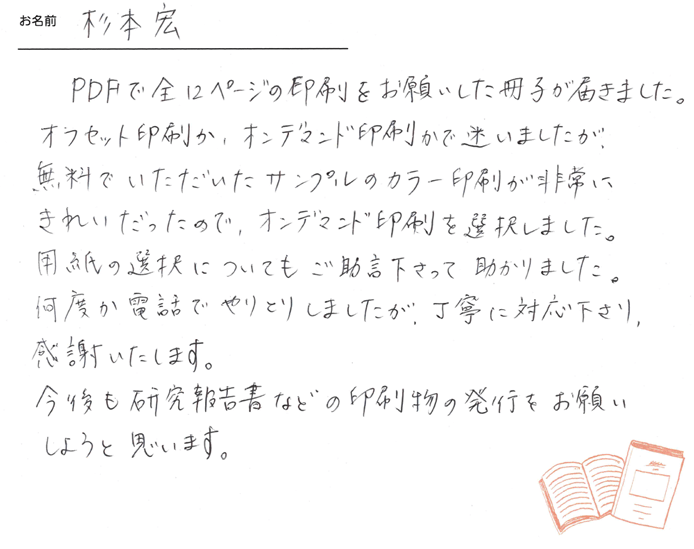 お名前 杉本宏
PDFで全12ページの印刷をお願いした冊子が届きました。
オフセット印刷か、オンデマンド印刷かで迷いましたが、
無料でいただいたサンプルのカラー印刷が非常に
きれいだったので、オンデマンド印刷を選択しました。
用紙の選択についてもご助言下さって助かりました。
何度か電話でやりとりしましたが、丁寧に対応下さり、
感謝いたします。
今後も研究報告書などの印刷物の発行をお願い
しようと思います。